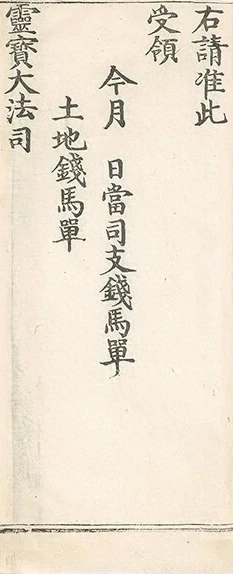 右請准此
受領
今月　日當司支錢馬單
土地錢馬單
靈寶大法司